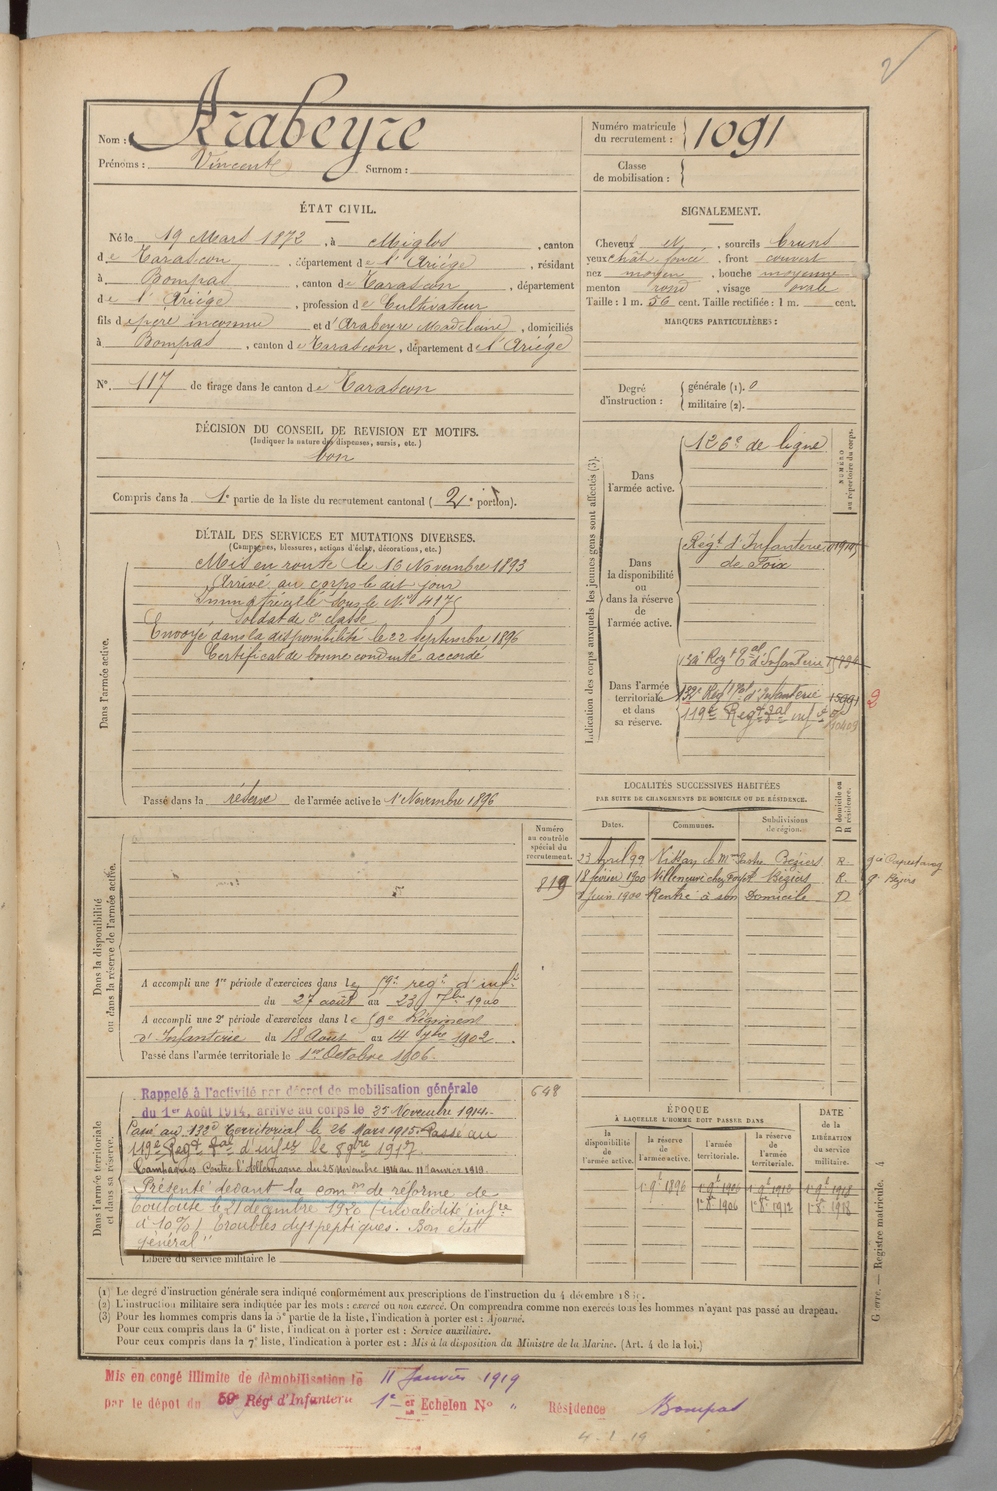 Nom : Arabeyre
Prénoms : Vincent Surnom :
Numéro matricule du recrutement : 1091
Classe de mobilisation :
ÉTAT CIVIL.
Né le 19 Mars 1872, à Miglos, canton
de Tarascon, département de l'Ariége, résidant
à Bompas, canton de Tarascon, département
de l'Ariége, profession de Cultivateur
fils de père inconnu et d'Arabeyre Madeleine, domiciliés
à Bompas, canton de Tarascon, département de l'Ariége
N° 117 de tirage dans le canton de Tarascon
SIGNALEMENT.
Cheveux N, sourcils bruns
yeux chât. foncé, front couvert
nez moyen, bouche moyenne
menton rond, visage ovale
Taille : 1 m. 56 cent. Taille rectifiée : 1 m. cent.
MARQUES PARTICULIÈRES :
Degré d'instruction : générale (1). 0
militaire (2).
DÉCISION DU CONSEIL DE REVISION ET MOTIFS.
(Indiquer la nature des dispenses, sursis, etc.)
bon
Compris dans la 1e partie de la liste du recrutement cantonal (2e portion).
DÉTAIL DES SERVICES ET MUTATIONS DIVERSES.
(Campagnes, blessures, actions d'éclat, décorations, etc.)
Dans l'armée active.
Mis en route le 16 Novembre 1893
Arrivé au corps le dit jour
Immatriculé sous le N° 4175
Soldat de 2e classe
Envoyé dans la disponibilité le 22 Septembre 1896
Certificat de bonne conduite accordé
Passé dans la réserve de l'armée active le 1er Novembre 1896
Indication des corps auxquels les jeunes gens sont affectés (3).
NUMÉRO au répertoire du corps.
Dans l'armée active.
126e de ligne
Dans la disponibilité ou dans la réserve de l'armée active.
Régt d'Infanterie
de Foix
Dans l'armée territoriale et dans sa réserve.
132e Régt tal d'Infanterie
119e Regt tal inf
2
LOCALITÉS SUCCESSIVES HABITÉES
PAR SUITE DE CHANGEMENTS DE DOMICILE OU DE RÉSIDENCE.
Dates. Communes. Subdivisions de région. D domicile ou R résidence.
23 Avril 99 Béziers R.
18 février 1900 Villeneuve Béziers R. g. Béziers
1 Juin 1900 Rentré à son Domicile D
Numéro au contrôle spécial du recrutement.
819
Dans la disponibilité ou dans la réserve de l'armée active.
A accompli une 1re période d'exercices dans le 59e rég.t d'inf.ie
du 27 août au 23 7bre 1900
A accompli une 2e période d'exercices dans le 59e Régiment
d'Infanterie du 18 Août au 14 7bre 1902.
Passé dans l'armée territoriale le 1er Octobre 1906.
Dans l'armée territoriale et dans sa réserve.
648
Rappelé à l'activité par décret de mobilisation générale
du 1er Août 1914, arrivé au corps le 25 Novembre 1914.
Passé au 132e Territorial le 26 Mars 1915. Passé au
119e Regt tal d'infie le 8 9bre 1917.
Campagnes Contre l'Allemagne du 25 novembre 1914 au 11 Janvier 1919.
Présenté devant la comon de réforme de
Toulouse le 21 décembre 1920 (invalidité infre
d 10%) troubles dyspeptiques. Bon état
général"
Libéré du service militaire le
ÉPOQUE
À LAQUELLE L'HOMME DOIT PASSER DANS
DATE DE LA LIBÉRATION DU SERVICE MILITAIRE.
la disponibilité de l'armée active. la réserve de l'armée active. l'armée territoriale. la réserve de l'armée territoriale.
1896 1906 1912 1918
1906 1912 1918
(1) Le degré d'instruction générale sera indiqué conformément aux prescriptions de l'instruction du 4 décembre
(2) L'instruction militaire sera indiquée par les mots : exercé ou non exercé. On comprendra comme non exercés tous les hommes n'ayant pas passé au drapeau.
(3) Pour les hommes compris dans la 5e partie de la liste, l'indication à porter est : Ajourné.
Pour ceux compris dans la 6e liste, l'indication à porter est : Service auxiliaire.
Pour ceux compris dans la 7e liste, l'indication à porter est : Mis à la disposition du Ministre de la Marine. (Art. 4 de la loi.)
Guerre. — Registre matricule. 4
Mis en congé illimité de démobilisation le 11 Janvier 1919
par le dépot du 59e Régt d'Infanterie 1er Echelon N° " Résidence Bompas